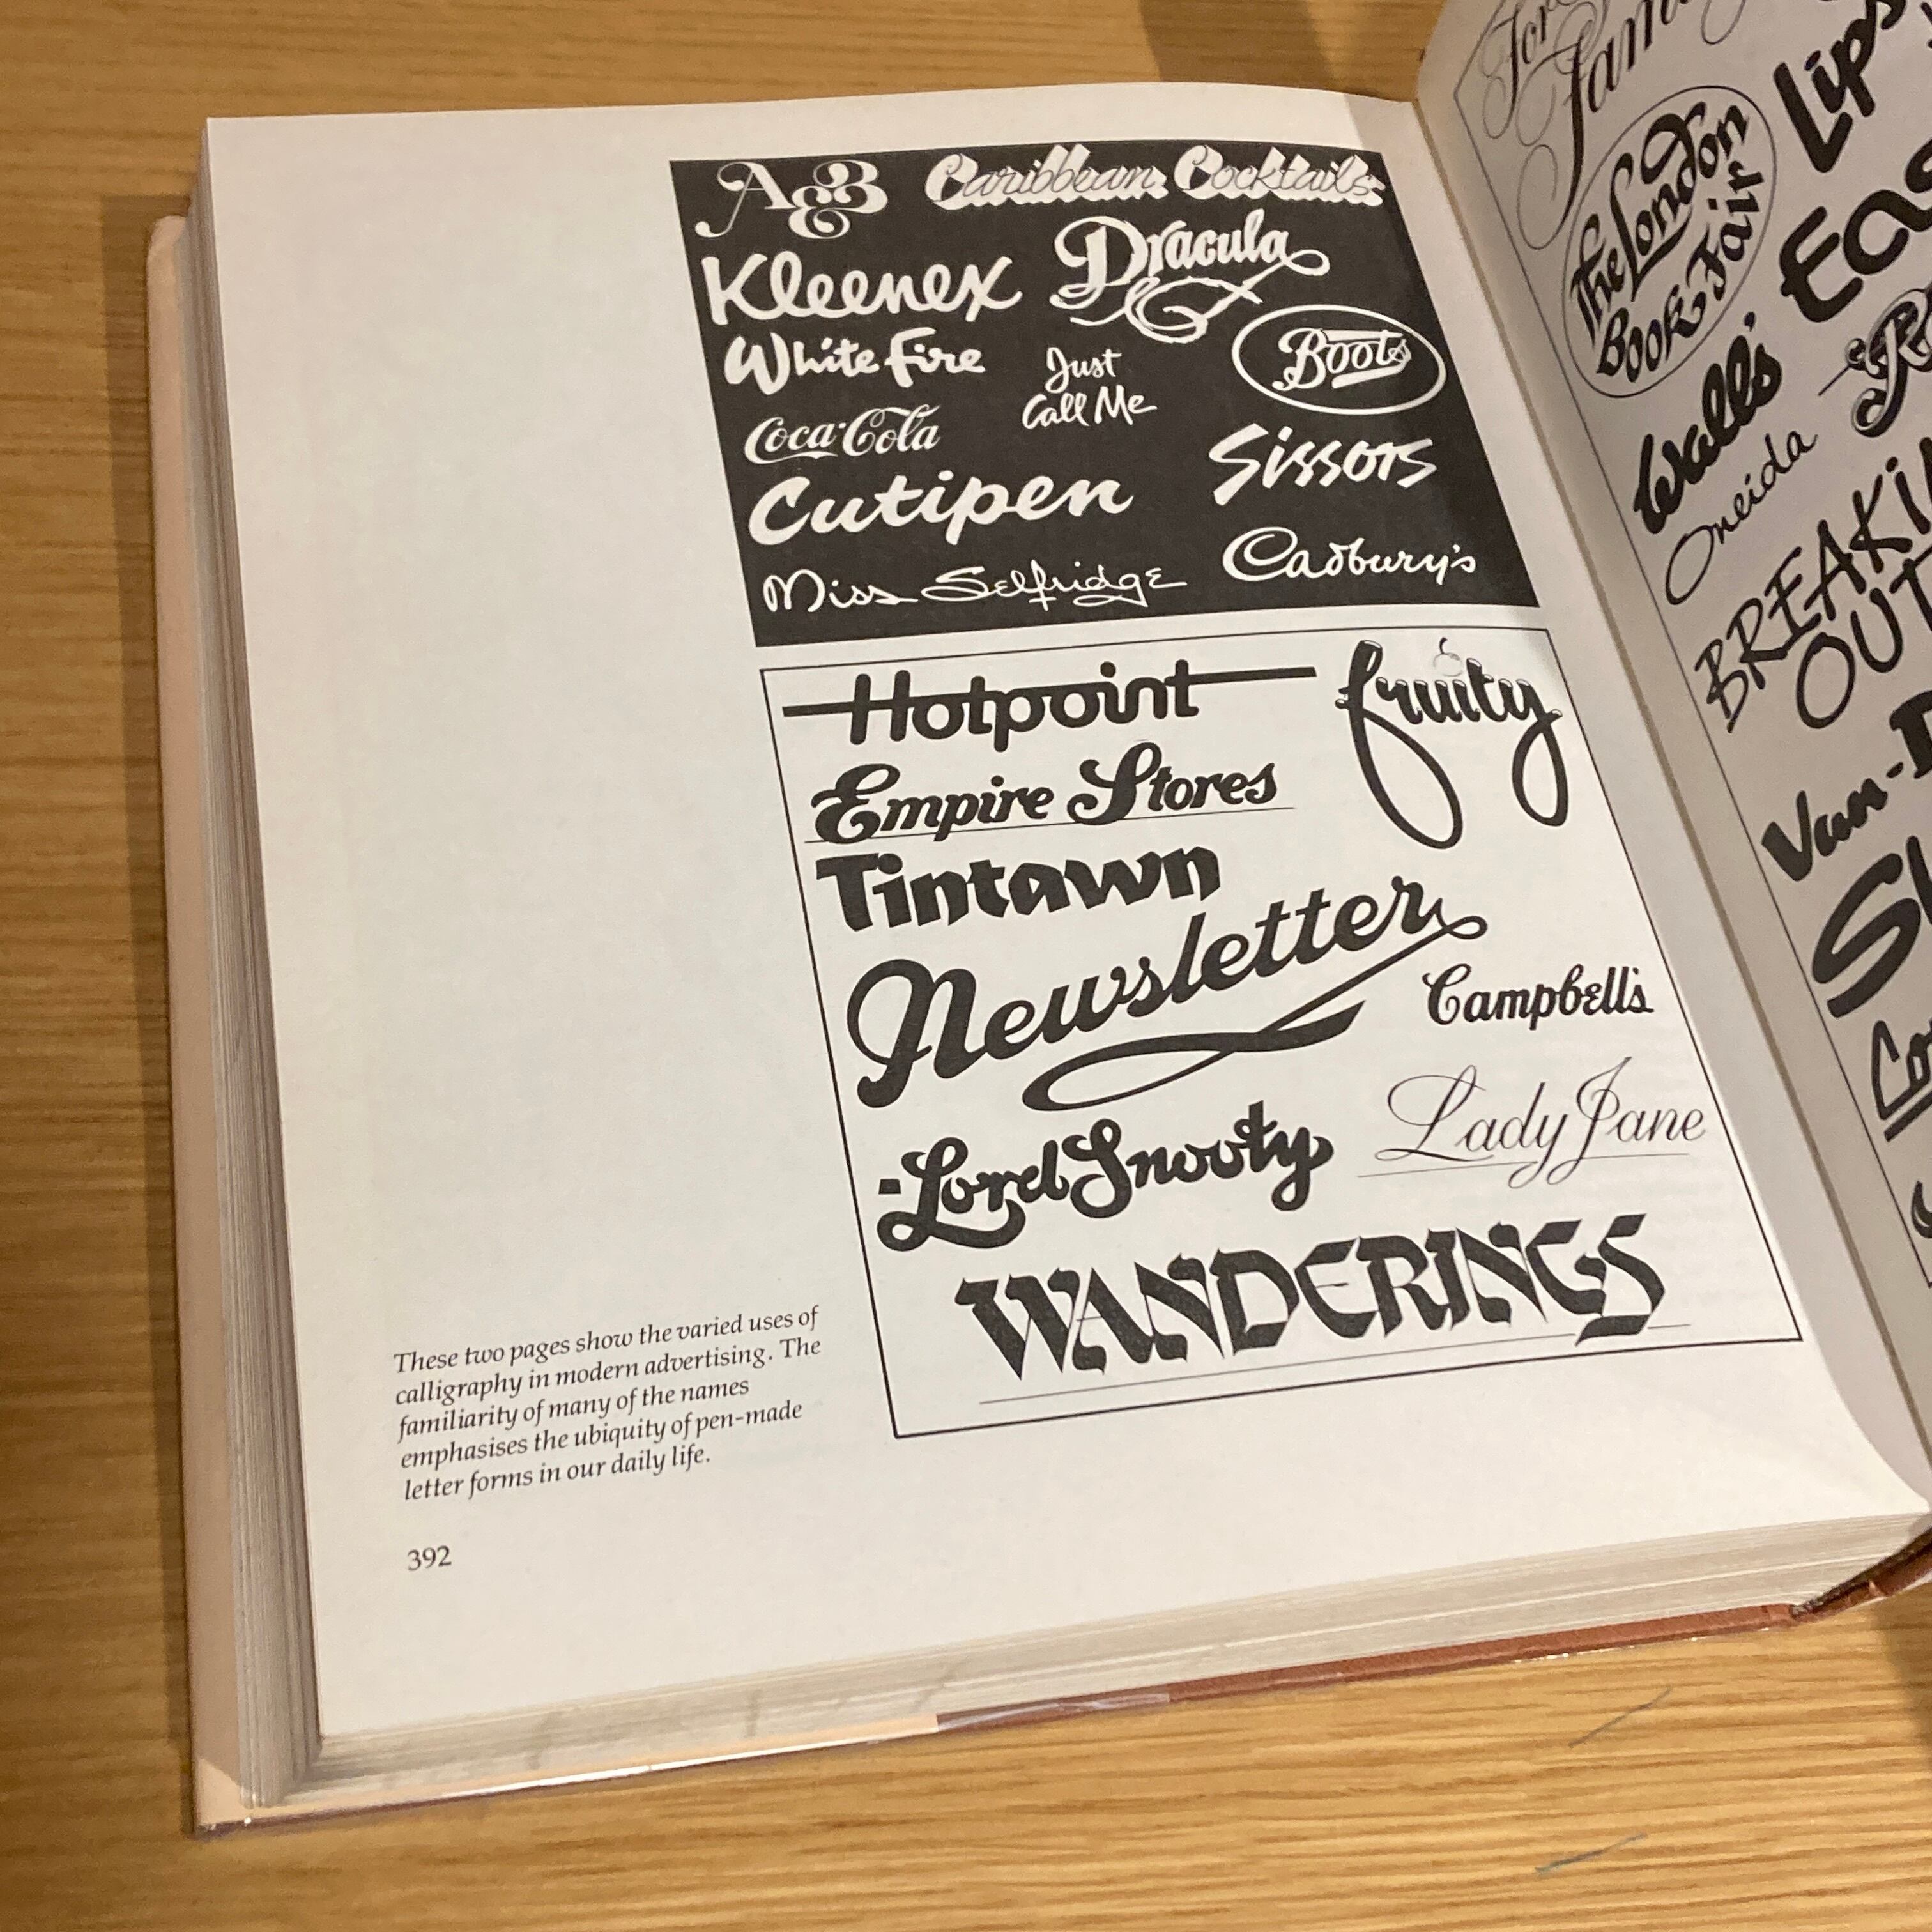 A&B
Caribbean Cocktails
Kleenex
Dracula
White Fire
Just
Call Me
Boots
Coca-Cola
Sissors
Cutipen
Miss Selfridge
Cadbury's
Hotpoint
fruity
Empire Stores
Tintawn
Newsletter
Campbell's
Lord Snooty
Lady Jane
WANDERINGS
These two pages show the varied uses of
calligraphy in modern advertising. The
familiarity of many of the names
emphasises the ubiquity of pen-made
letter forms in our daily life.
392
The London
Book Fair
Wall's
Oneida